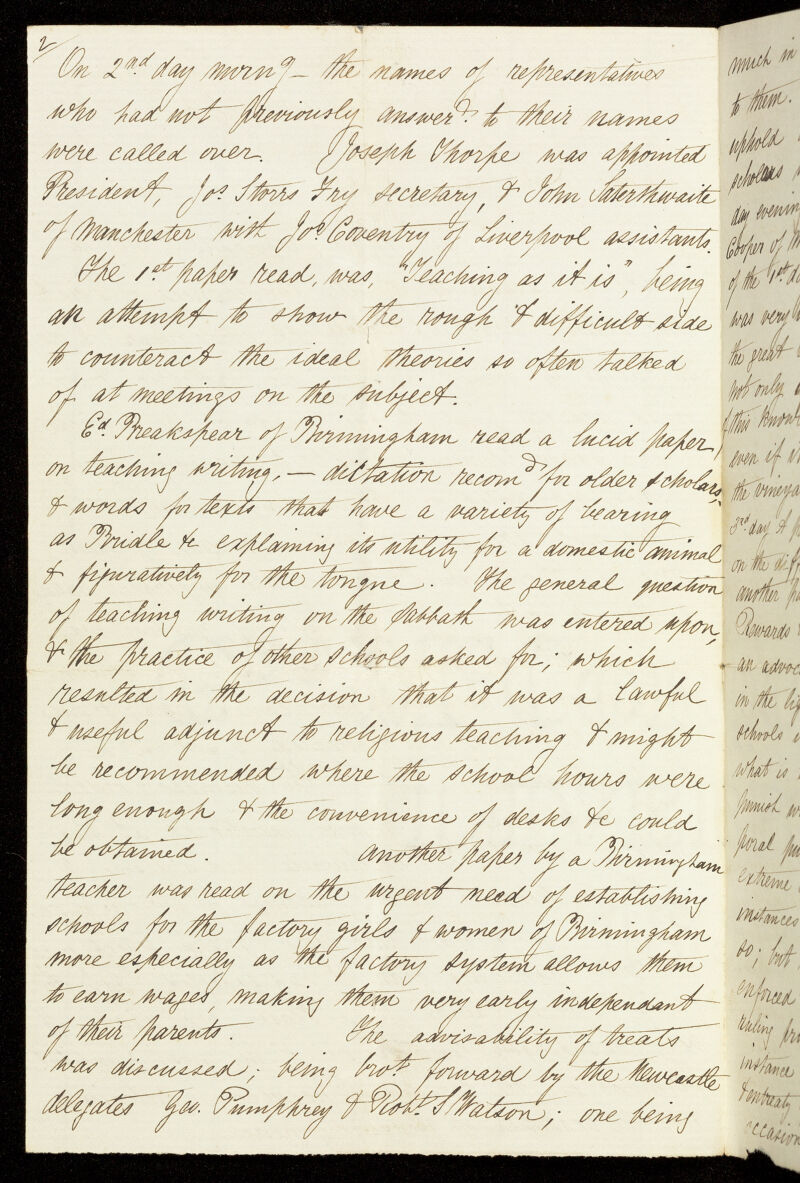 2/
On 2nd day morng - the names of representatives
who had not previously answerd. to their names
were called over. Joseph Thorpe was appointed
President, Jos. Storrs Fry secretary, & John Saterthwaite
of Manchester with Jos. Coventry of Liverpool assistants.
The 1st paper read, was, "Teaching as it is", being
an attempt to show the rough & difficult side
to counteract the ideal theories so often talked
of at meetings on the subject.
Ed. Breakspear of Birmingham read a lucid paper,
on teaching writing, - dictation recomd for older scholars,
& words for texts that have a variety of bearing
as Bridle &c explaining its utility for a domestic animal
& figuratively for the tongue. The general question
of teaching writing on the Sabbath was entered upon,
& the practice of other schools asked for; which
resulted in the decision that it was a lawful
& useful adjunct to religious teaching & might
be recommended where the school hours were
long enough & the convenience of desks &c could
be obtained. Another paper by a Birmingham
teacher was read on the urgent need of establishing
schools for the factory girls & women of Birmingham
more especially as the factory system allows them
to earn wages, making them very early independant
of their parents. The advisability of treats
was discussed; being brot. forward by the Newcastle
delegates Geo. Pumphrey & Robt. S Watson; one being
much in
to them.
uphold
scholars
day evenin
Cooper of
of the 1st d
was very
the great
not only
this know
even if
the vineya
3rd day
on the diff
another
Rewards
an advoc
in the li
schools
what is
punish w
poral pu
extreme
instances
so; but
enforced
ruling pr
instance
& entreaty
occasion